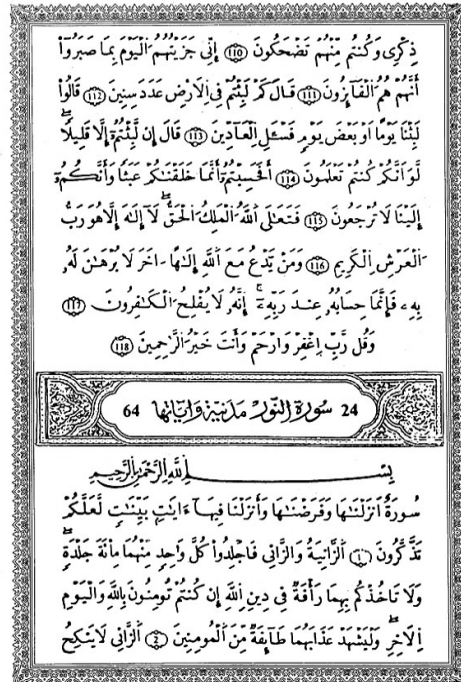 ذِكْرِى وَكُنتُم مِّنْهُمْ تَضْحَكُونَ 110 إِنِّى جَزَيْتُهُمُ الْيَوْمَ بِمَا صَبَرُوٓاْ
أَنَّهُمْ هُمُ الْفَآئِزُونَ 111 قَالَ كَمْ لَبِثْتُمْ فِى الْأَرْضِ عَدَدَ سِنِينَ 112 قَالُواْ
لَبِثْنَا يَوْمًا اَوْ بَعْضَ يَوْمٍ فَسْـَٔلِ الْعَآدِّينَ 113 قَالَ إِن لَّبِثْتُمْ إِلَّا قَلِيلًا
لَّوَ اَنَّكُمْ كُنتُمْ تَعْلَمُونَ 114 أَفَحَسِبْتُمُۥٓ أَنَّمَا خَلَقْنَٰكُمْ عَبَثًا وَأَنَّكُمُۥٓ
إِلَيْنَا لَا تُرْجَعُونَ 115 فَتَعَٰلَى اللَّهُ الْمَلِكُ الْحَقُّ لَآ إِلَٰهَ إِلَّا هُوَ رَبُّ
الْعَرْشِ الْكَرِيمِ 116 وَمَنْ يَّدْعُ مَعَ اللَّهِ إِلَٰهًا اٰخَرَ لَا بُرْهَٰنَ لَهُۥ
بِهِۦ فَإِنَّمَا حِسَابُهُۥ عِندَ رَبِّهِۦٓ إِنَّهُۥ لَا يُفْلِحُ الْكَٰفِرُونَ 117
وَقُل رَّبِّ اِغْفِرْ وَارْحَمْ وَأَنتَ خَيْرُ الرَّٰحِمِينَ 118
24 سورة النور مدنية وآياتها 64
بِسْمِ اللَّهِ الرَّحْمَٰنِ الرَّحِيمِ
سُورَةٌ اَنزَلْنَٰهَا وَفَرَضْنَٰهَا وَأَنزَلْنَا فِيهَآ ءَايَٰتِۭ بَيِّنَٰتٍ لَّعَلَّكُمْ
تَذَّكَّرُونَ 1 اَلزَّانِيَةُ وَالزَّانِى فَاجْلِدُواْ كُلَّ وَٰحِدٍ مِّنْهُمَا مِاْئَةَ جَلْدَةٍ
وَلَا تَاخُذْكُم بِهِمَا رَأْفَةٌ فِى دِينِ اللَّهِ إِن كُنتُمْ تُومِنُونَ بِاللَّهِ وَالْيَوْمِ
اِلَاخِرِ وَلْيَشْهَدْ عَذَابَهُمَا طَآئِفَةٌ مِّنَ الْمُومِنِينَ 2 اَلزَّانِى لَا يَنكِحُ